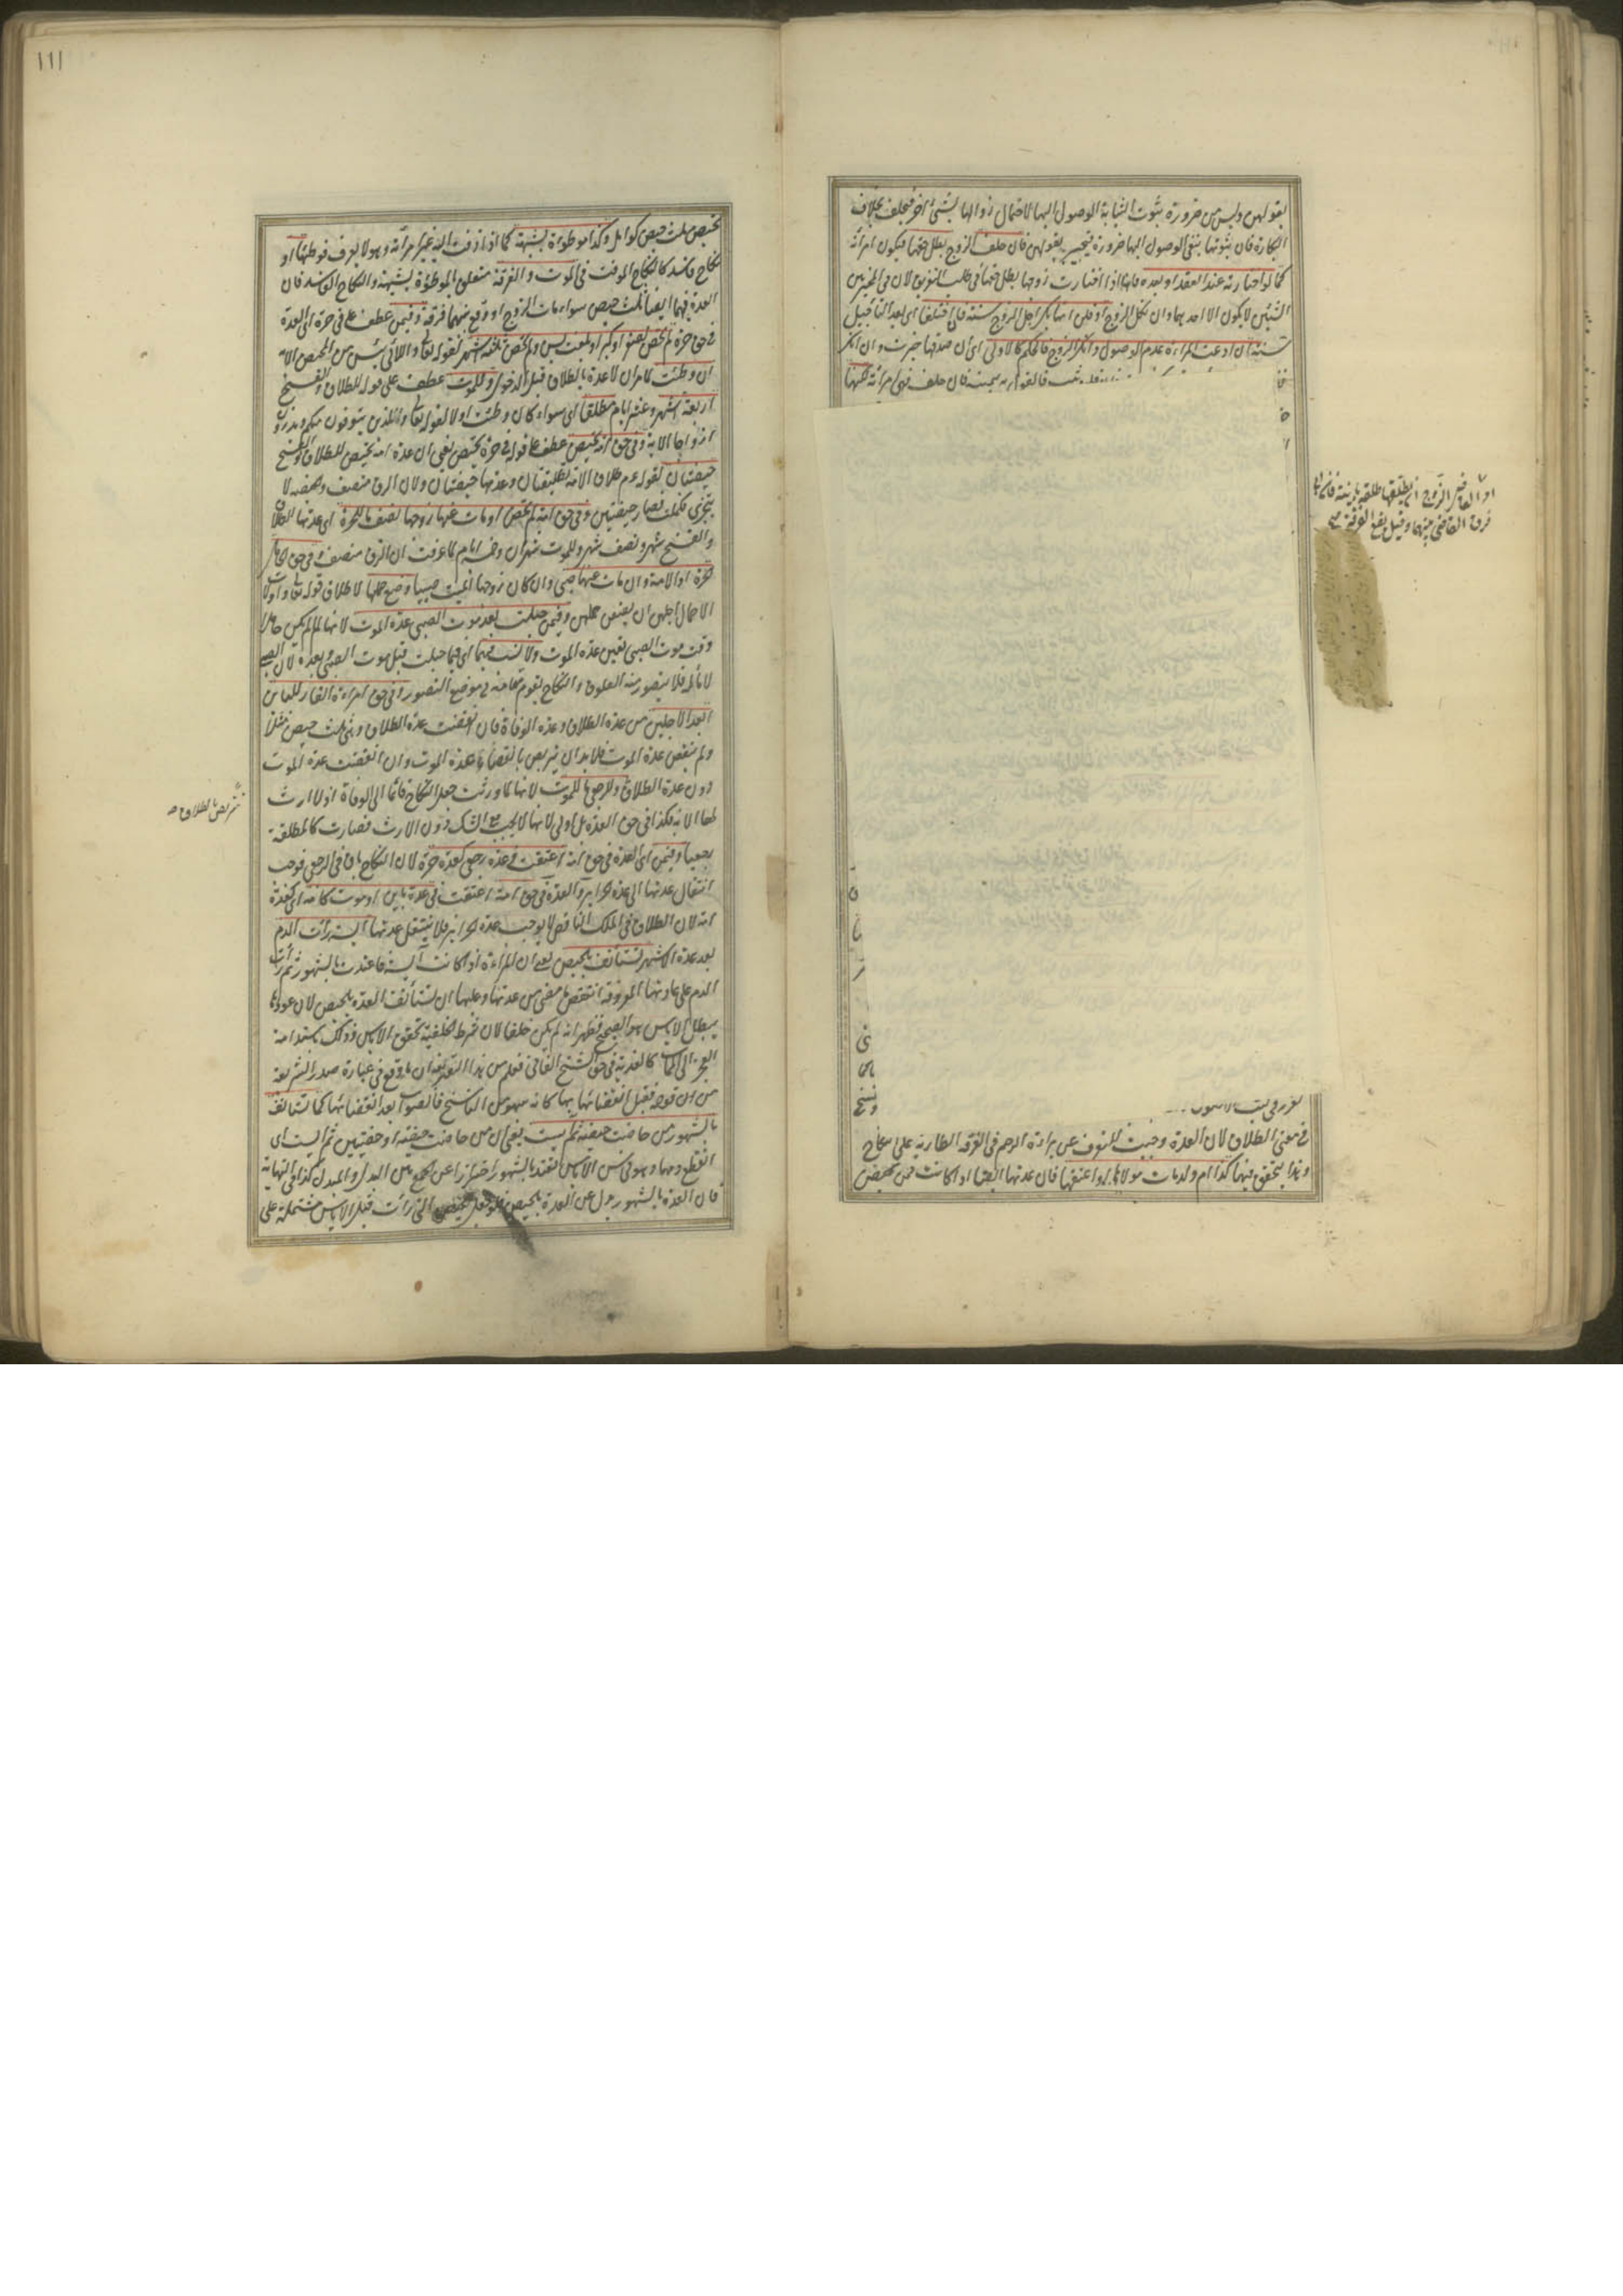 بقولهن وليس من ضرورة ثبوت الثيابة الوصول اليها لاحتمال زوالها بشئ آخر فيحلف بخلاف
البكارة فان ثبوتها ينفي الوصول اليها ضرورة فيخير بقولهن فان حلف الزوج بطل حقها فيكون امرأته
كما لو اختارته عند العقد او بعده فانها اذا اختارت زوجها بطل حقها في طلب التفريق لان في المخير بين
الشيئين لا يكون الا احدهما وان نكل الزوج او قلن انها بكر اجل الزوج سنة فان اختلفا اي بعد التأجيل
سنة ان ادعت المرأة عدم الوصول وانكر الزوج فالحكم كالاولى اي ان صدقها خيرت وان انكر
فالقول له بيمينه فان حلف فهي امرأته
في معنى الطلاق لان العدة وجبت للتعرف عن براءة الرحم في الفرقة الطارية على النكاح
وهذا يتحقق فيها كذا ام ولد مات مولاها او اعتقها فان عدتها ايضا اذا كانت ممن تحيض
فرق القاضي بينهما وقيل يقع الفرقة
١١١
تحيض ثلث حيض كوامل وكذا موطوءة بشبهة كما اذا زفت اليه غير امرأته وهو لا يعرف فوطئها او
نكاح فاسد كالنكاح الموقت في الموت والفرقة متعلق بالموطوءة بشبهة والنكاح الفاسد فان
العدة فيهما ايضا ثلث حيض سواء مات الزوج او وقع بينهما فرقة وفيمن عطف على في حرة اي العدة
في حق حرة لم تحض لصغر او كبر او بلغت بسن ولم تحض ثلثة اشهر لقوله تعالى واللائي يئسن من المحيض الآية
ان وطئت لما مر ان لا عدة بالطلاق قبل الدخول وللموت عطف على قوله للطلاق والفسخ
اربعة اشهر وعشر ايام مطلقا اي سواء كان وطئت او لا لقوله تعالى والذين يتوفون منكم ويذرون
ازواجا الآية وفي حق امة تحيض عطف على قوله في حرة تحيض يعني ان عدة امة تحيض للطلاق والفسخ
حيضتان لقوله ءم طلاق الامة تطليقتان وعدتها حيضتان ولان الرق منصف والحيضة لا
تتجزى فكملت فصار حيضتين وفي حق امة لم تحض او مات عنها زوجها نصف ما للحرة اي عدتها للطلاق
والفسخ شهر ونصف شهر وللموت شهران وخمسة ايام لما عرفت ان الرق منصف وفي حق الحامل
الحرة او الامة وان مات عنها صبي وان كان زوجها الميت صبيا وضع حملها لاطلاق قوله تعالى واولات
الاحمال اجلهن ان يضعن حملهن وفيمن حبلت بعد موت الصبي عدة الموت لانها لما لم يكن حاملا
وقت موت الصبي تعين عدة الموت ولا نسب فيهما اي فيما حبلت قبل موت الصبي وبعده لان الصبي
لا ماء له فلا يتصور منه العلوق والنكاح يقوم مقامه في موضع التصور وفي حق امرأة الفار للباين
ابعد الاجلين من عدة الطلاق وعدة الوفاة فان انقضت عدة الطلاق وهي ثلث حيض مثلا
ولم ينقض عدة الموت فلا بد ان يتربص بانقضاء عدة الموت وان انقضت عدة الموت
دون عدة الطلاق وللرجعي ما للموت لانها لما ورثت جعل النكاح قائما الى الوفاة اذ لا ارث
لها الا به فكذا في حق العدة بل اولى لانها لا يجب مع الشك دون الارث فصارت كالمطلقة
رجعيا وفيمن اي العدة في حق امة اعتقت في عدة رجعي كعدة حرة لان النكاح باق في الرجعي فوجب
انتقال عدتها الى عدة الحرائر والعدة في حق امة اعتقت في عدة باين او موت كامة اي كعدة
امة لان الطلاق في الملك الناقص لا يوجب عدة الحرائر فلا ينتقل عدتها آيسة رأت الدم
بعد عدة الاشهر تستأنف بالحيض يعني ان المرأة اذا كانت آيسة فاعتدت بالشهور ثم رأت
الدم على عادتها المعروفة انتقض ما مضى من عدتها وعليها ان تستأنف العدة بالحيض لان عودها
يبطل الاياس هو الصحيح فظهر انه لم يكن خلفا لان شرط الخلفية تحقق الاياس وذلك باستدامة
العجز الى الممات كالفدية في حق الشيخ الفاني فعلم من هذا التقرير ان ما وقع في عبارة صدر الشريعة
من ان قوله فقبل انقضائها بها كانه سهو من الناسخ فالصواب بعد انقضائها كما تستأنف
بالشهور من حاضت حيضة ثم آيست يعني ان من حاضت حيضة او حيضتين ثم آيست اي
انقطع دمها وهو في سن الاياس تعتد بالشهور احترازا عن الجمع بين البدل والمبدل كذا في النهاية
فان العدة بالشهور بدل عن العدة بالحيض فلو جعل الحيض التي رأت قبل الاياس مشتملة على
تتربص بالطلاق